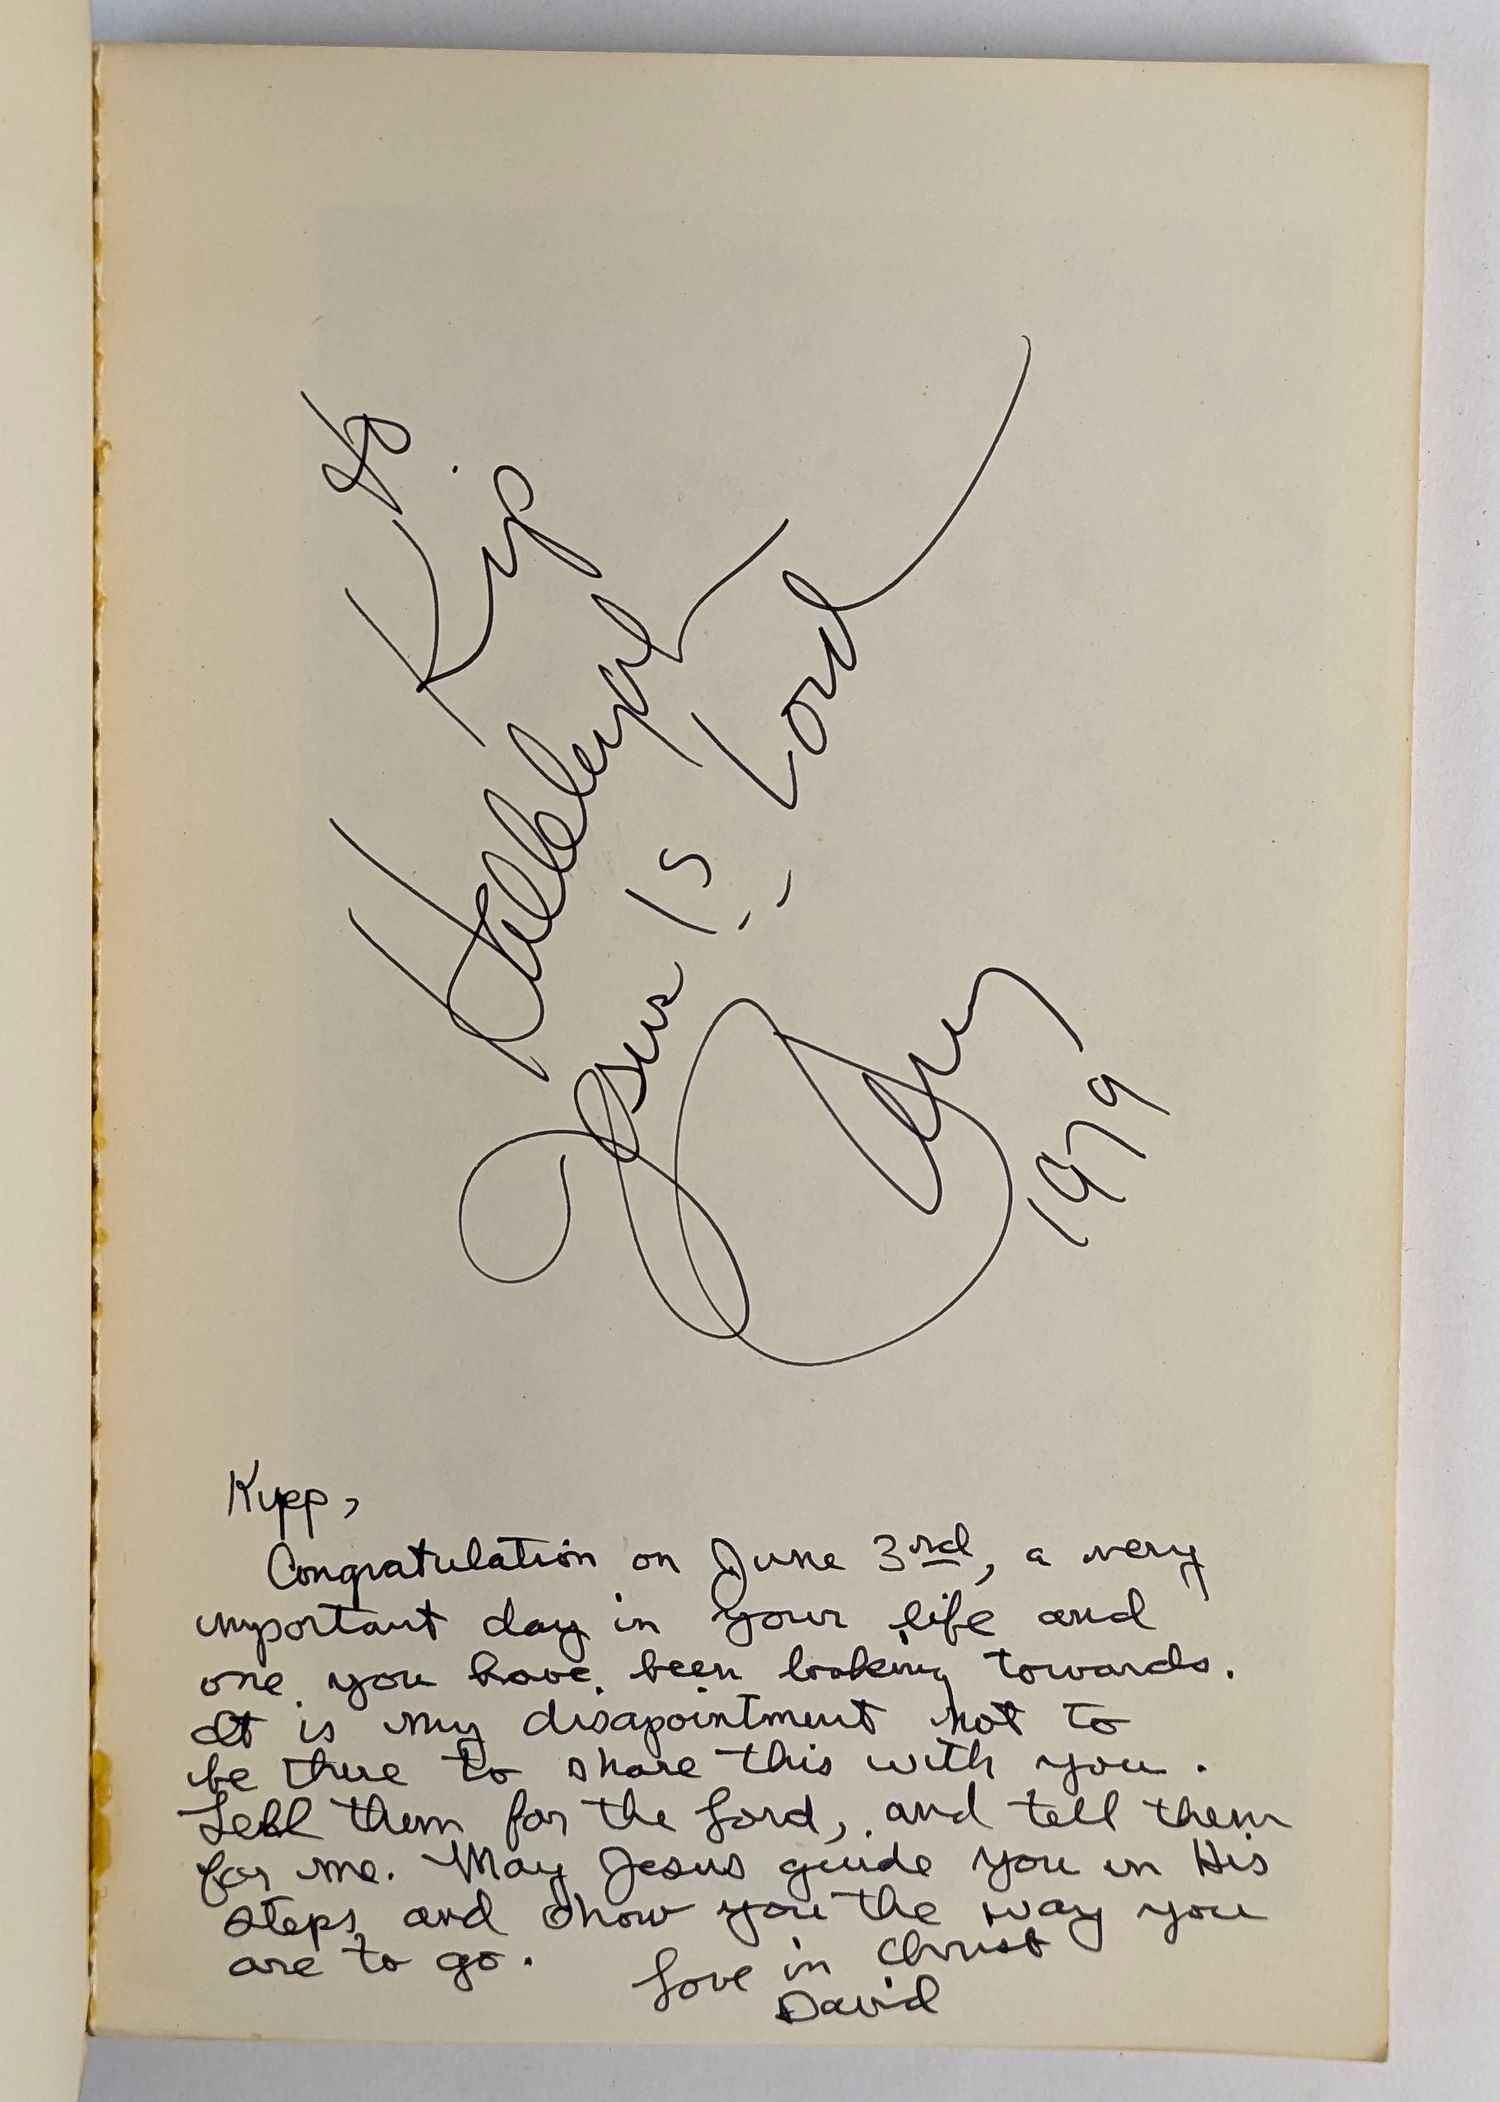 to
Kip
Hallelujah
Jesus Is Lord
1979
Kypp,
Congratulation on June 3rd, a very
important day in your life and
one you have been looking towards.
It is my disapointment not to
be there to share this with you.
Tell them for the Lord, and tell them
for me. May Jesus guide you in His
steps and show you the way you
are to go.
Love in Christ
David